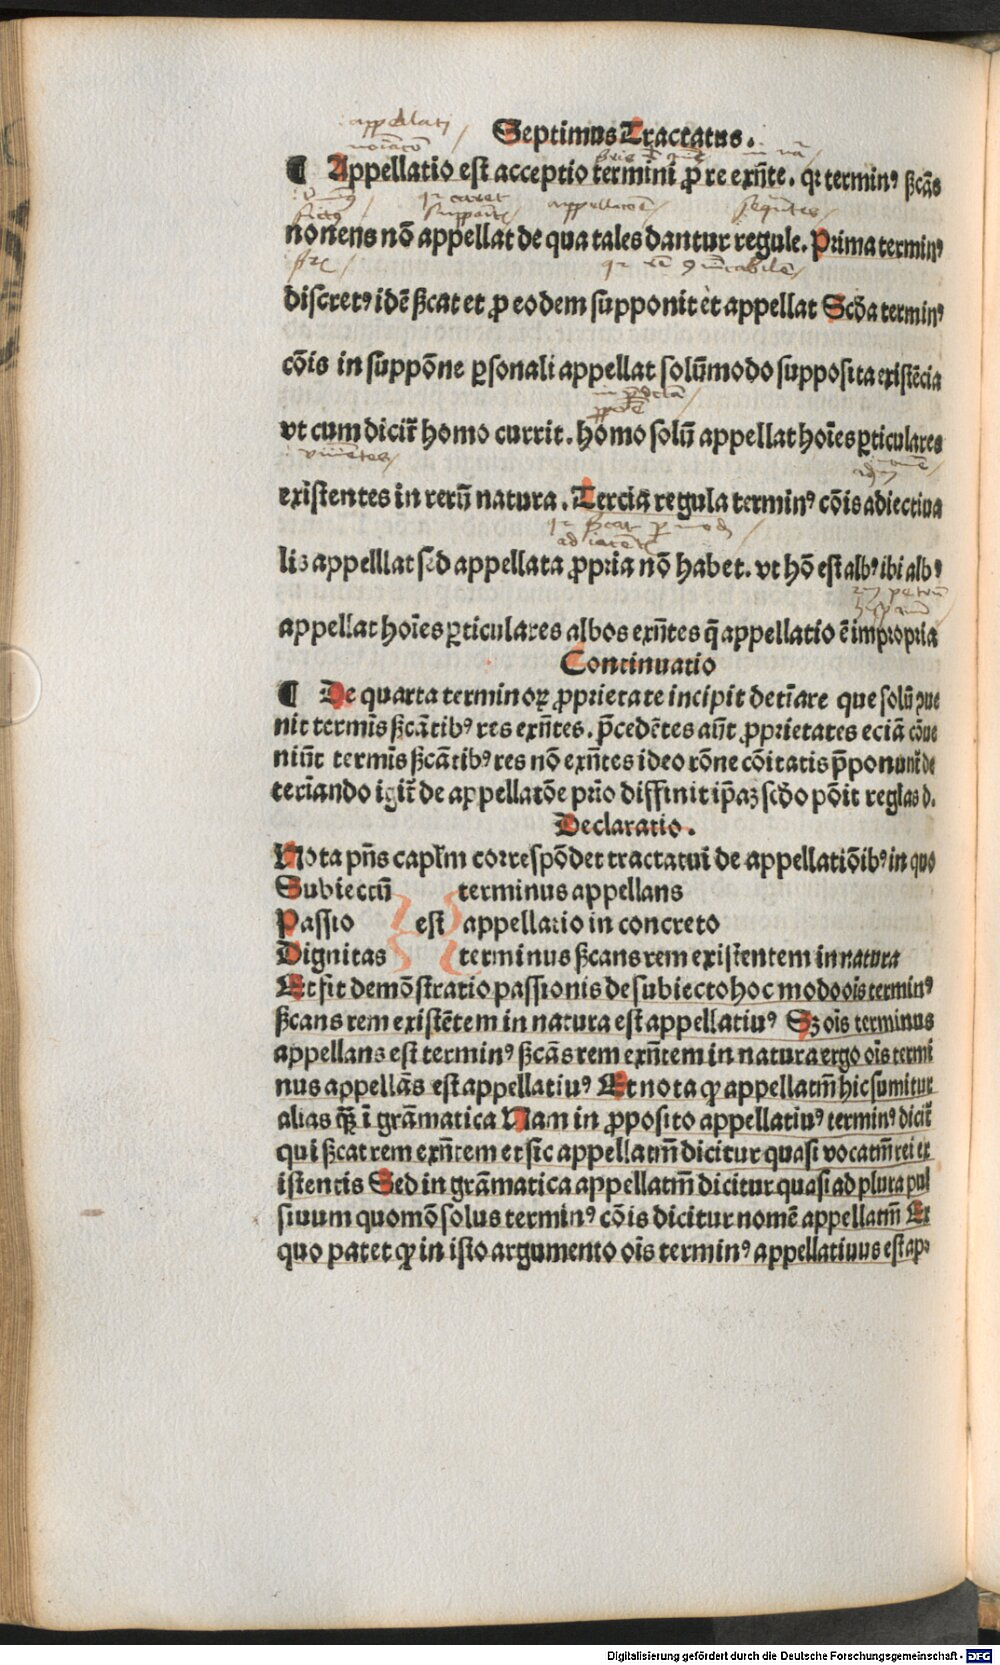 appellati
Septimus Tractatus.
¶ Appellatio est acceptio termini ꝓ re exñte. qꝛ terminꝰ ẞcãs
non ens nõ appellat de qua tales dantur regule. Prima terminꝰ
discretꝰ idẽ ẞcat et ꝓ eodem supponit et appellat Scd̃a terminꝰ
cõis in suppõne ꝑsonali appellat solũmodo supposita existẽcia
vt cum dicit᷑ homo currit. homo solũ appellat hoĩes ꝑticulares
existentes in rerũ natura. Tercia regula terminꝰ cõis adiectiua
lis appelllat sed appellata ꝓpria nõ habet. vt hõ est albꝰ ibi albꝰ
appellat hoĩes ꝑticulares albos exñtes q̃ appellatio ẽ impropria
Continuatio
¶ De quarta terminoꝝ ꝓprietate incipit det̃iare que solũ ꝯue
nit termĩs ẞcãtibꝰ res exñtes. p̃cedẽtes aũt ꝓprietates eciã cõue
niũt termĩs ẞcãtibꝰ res nõ exñtes ideo rõne cõitatis p̃ponunt᷑ de
ter̃iando igit᷑ de appellatõe prĩo diffinit ip̃aꝫ scd̃o põit reglas d.
Declaratio.
Nota pñs caplm̃ correspõdet tractatui de appellatiõibꝰ in quo
Subiectũ terminus appellans
Passio est appellatio in concreto
Dignitas terminus ẞcans rem existentem in natura
Et fit demõstratio passionis de subiecto hoc modo oĩs terminꝰ
ẞcans rem existẽtem in natura est appellatiuꝰ Sꝫ oĩs terminus
appellans est terminꝰ ẞcãs rem exñtem in natura ergo oĩs termi
nus appellãs est appellatiuꝰ Et nota ꝙ appellatm̃ hic sumitur
alias qꝫ̃ ĩ grãmatica Nam in ꝓposito appellatiuꝰ terminꝰ dicit᷑
qui ẞcat rem exñtem et sic appellatm̃ dicitur quasi vocatm̃ rei ex
istentis Sed in grãmatica appellatm̃ dicitur quasi ad plura pul
siuum quomõ solus terminꝰ cõis dicitur nomẽ appellatm̃ Ex
quo patet ꝙ in isto argumento oĩs terminꝰ appellatiuus est ap
Digitalisierung gefördert durch die Deutsche Forschungsgemeinschaft - DFG